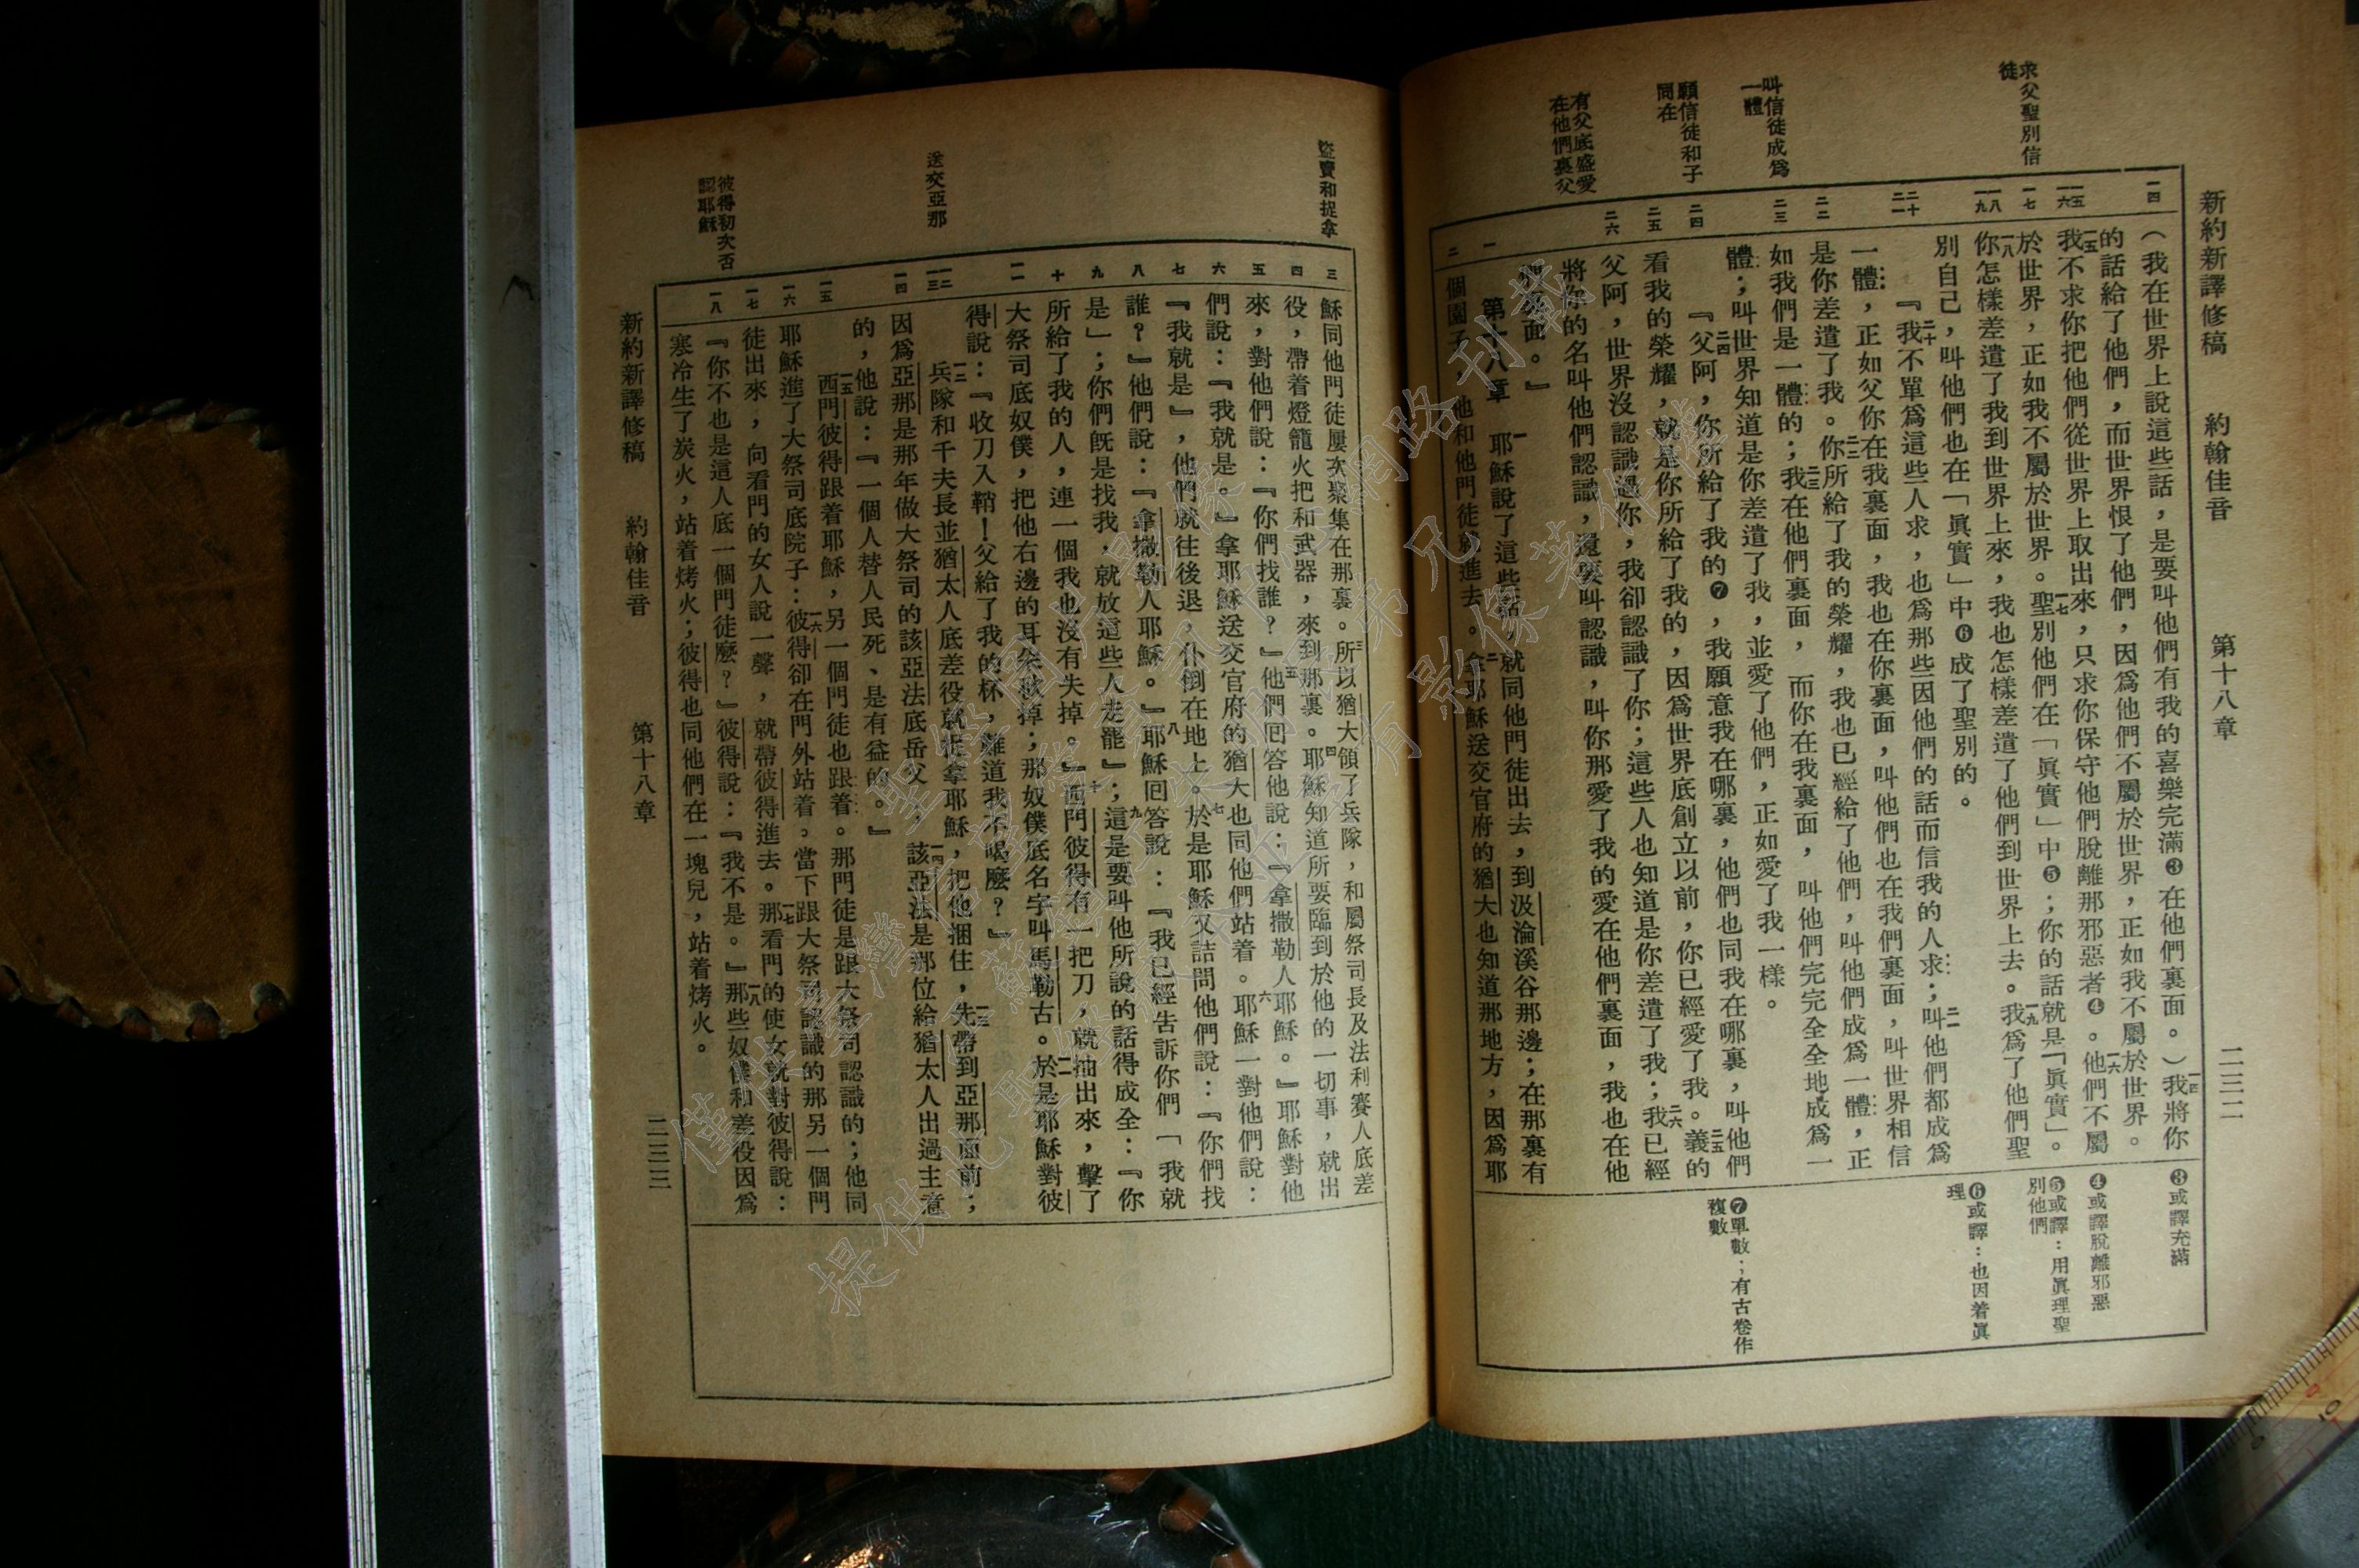 新約新譯修稿　約翰佳音　第十八章　二三二
求父聖別信
徒
叫信徒成爲
一體
願信徒和子
同在
有父底盛愛
在他們裏父
一四
一五
一六
一七
一八
一九
二十
二一
二二
二三
二四
二五
二六
一
二
（我在世界上說這些話，是要叫他們有我的喜樂完滿❸在他們裏面。）一四我將你
的話給了他們，而世界恨了他們，因爲他們不屬於世界，正如我不屬於世界。
一五我不求你把他們從世界上取出來，只求你保守他們脫離那邪惡者❹。一六他們不屬
於世界，正如我不屬於世界。一七聖別他們在「眞實」中❺；你的話就是「眞實」。
一八你怎樣差遣了我到世界上來，我也怎樣差遣了他們到世界上去。一九我爲了他們聖
別自己，叫他們也在「眞實」中❻成了聖別的。
『二十我不單爲這些人求，也爲那些因他們的話而信我的人求；二一叫他們都成爲
一體，正如父你在我裏面，我也在你裏面，叫他們也在我們裏面，叫世界相信
是你差遣了我。二二你所給了我的榮耀，我也已經給了他們，叫他們成爲一體，正
如我們是一體的；二三我在他們裏面，而你在我裏面，叫他們完完全全地成爲一
體；叫世界知道是你差遣了我，並愛了他們，正如愛了我一樣。
『二四父阿，你所給了我的❼，我願意我在哪裏，他們也同我在哪裏，叫他們
看我的榮耀，就是你所給了我的，因爲世界底創立以前，你已經愛了我。二五義的
父阿，世界沒認識過你，我卻認識了你；這些人也知道是你差遣了我；二六我已經
將你的名叫他們認識，還要叫認識，叫你那愛了我的愛在他們裏面，我也在他
們裏面。』
第十八章　一耶穌說了這些話，就同他門徒出去，到汲淪溪谷那邊；在那裏有
個園子，他和他門徒就進去。二拿耶穌送交官府的猶大也知道那地方，因爲耶
❸或譯充滿
❹或譯脫離邪惡
❺或譯：用眞理聖
別他們
❻或譯：也因着眞
理
❼單數；有古卷作
複數
盜賣和捉拿
送交亞那
彼得初次否
認耶穌
三
四
五
六
七
八
九
十
一一
一二
一三
一四
一五
一六
一七
一八
穌同他門徒屢次聚集在那裏。三所以猶大領了兵隊，和屬祭司長及法利賽人底差
役，帶着燈籠火把和武器，來到那裏。四耶穌知道所要臨到於他的一切事，就出
來，對他們說：『你們找誰？』五他們回答他說：『拿撒勒人耶穌。』耶穌對他
們說：『我就是。』拿耶穌送交官府的猶大也同他們站着。六耶穌一對他們說：
『我就是』，他們就往後退，仆倒在地上。七於是耶穌又詰問他們說：『你們找
誰？』他們說：『拿撒勒人耶穌。』八耶穌回答說：『我已經告訴你們「我就
是」；你們旣是找我，就放這些人走罷』；九這是要叫他所說的話得成全：『你
所給了我的人，連一個我也沒有失掉。』十西門彼得有一把刀，就抽出來，擊了
大祭司底奴僕，把他右邊的耳朵砍掉；那奴僕底名字叫馬勒古。一一於是耶穌對彼
得說：『收刀入鞘！父給了我的杯，難道我不喝麽？』
一二兵隊和千夫長並猶太人底差役就捉拿耶穌，把他捆住，一三先帶到亞那面前；
因爲亞那是那年做大祭司的該亞法底岳父，一四該亞法是那位給猶太人出過主意
的，他說：『一個人替人民死、是有益的。』
一五西門彼得跟着耶穌，另一個門徒也跟着。那門徒是跟大祭司認識的；他同
耶穌進了大祭司底院子：一六彼得卻在門外站着。當下跟大祭司認識的那另一個門
徒出來，向看門的女人說一聲，就帶彼得進去。一七那看門的使女就對彼得說：
『你不也是這人底一個門徒麽？』彼得說：『我不是。』一八那些奴僕和差役因爲
寒冷生了炭火，站着烤火；彼得也同他們在一塊兒，站着烤火。
新約新譯修稿　約翰佳音　第十八章　二三三